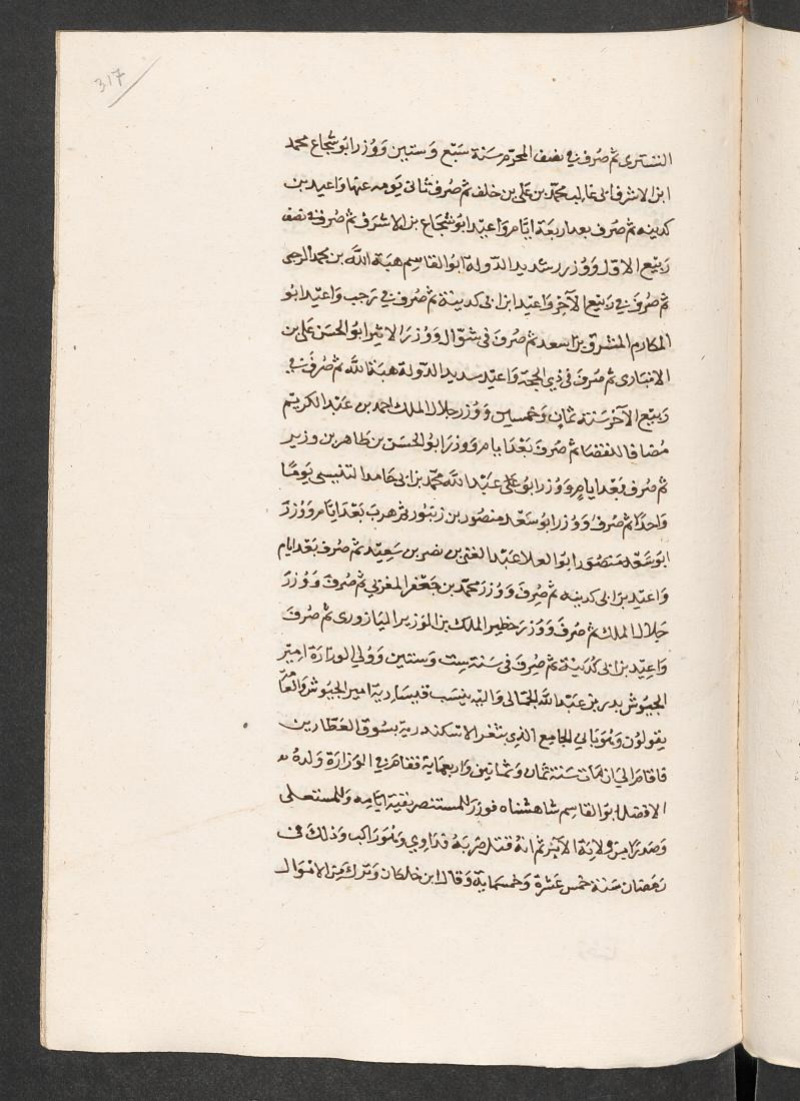 317
التسترى ثم صرف في نصف المحرم سنة سبع وستين ووزر ابو شجاع محمد
ابن الاشرف ابى غالب محمد بن على بن خلف ثم صرف ثانى يومه عنها واعيد بن
كدينه ثم صرف بعد اربعة ايام واعيد ابو شجاع بن الاشرف ثم صرف في نصف
ربيع الاول ووزر سديد الدولة ابو القاسم هبة الله بن محمد الرحبى
ثم صرف في ربيع الاخر واعيد ابن ابى كدينة ثم صرف في رجب واعيد ابو
المكارم المشرف بن اسعد ثم صرف فى شوال ووزر الاثير ابو الحسن على بن
الانبارى ثم صرف فى ذي الحجة واعيد سديد الدولة هبة الله ثم صرف في
ربيع الآخر سنة ثمان وخمسين ووزر جلال الملك احمد بن عبد الكريم
مضافا للقضا ثم صرف بعد ايام ووزر ابو الحسن بن طاهر بن وزير
ثم صرف بعد ايام ووزر ابو على عبد الله محمد بن ابى حامد التنيسى يوما
واحدا ثم صرف ووزر ابو سعد منصور بن زنبور ثم هرب بعد ايام ووزر
ابو سعد منصور ابو العلا عبد الغنى بن نصر بن سعيد ثم صرف بعد ايام
واعيد بن ابى كدينه ثم صرف ووزر محمد بن جعفر المغربي ثم صرف ووزر
جلال الملك ثم صرف ووزر خطير الملك بن الوزير اليازورى ثم صرف
واعيد بن ابى كدينة ثم صرف فى سنة ست وستين وولي الوزارة امير
الجيوش بدر بن عبد الله الجمالى واليه ينسب قيسارية امير الجيوش والعامة
يقولون وهو بانى الجامع الذى بثغر الاسكندرية بسوق العطارين
فاقام الى ان مات سنة ثمان وثمانين واربعماية فقام في الوزارة ولده
الافضل ابو القاسم شاهشناه فوزر للمستنصر بقية ايامه وللمستعلى
وصدرا من ولاية الآمر ثم انه قتل ضربه فداوي وهو راكب وذلك فى
رمضان سنة خمس عشرة وخمسماية وقال ابن خلكان وترك من الاموال